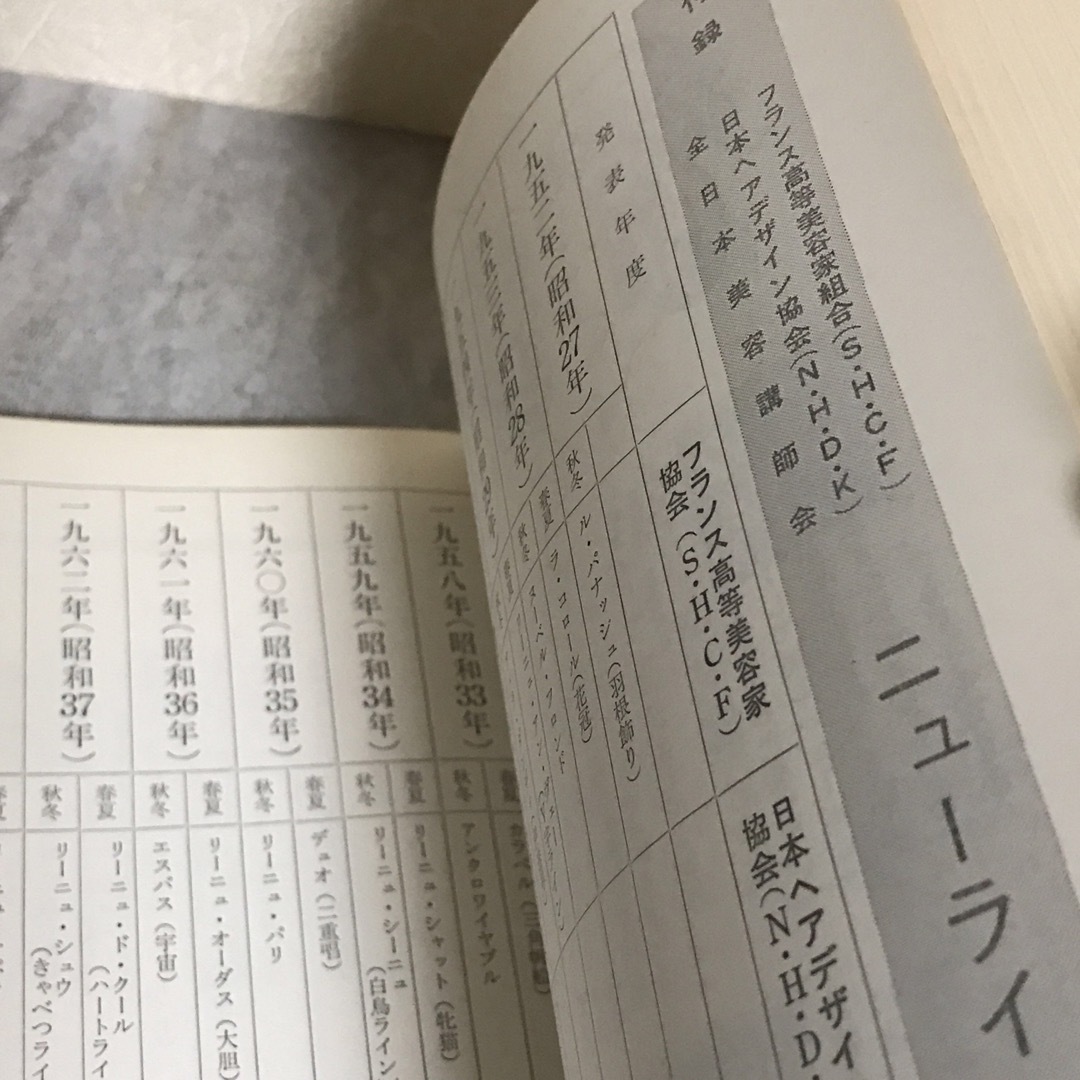 録
フランス高等美容家組合(S・H・C・F)
日本ヘアデザイン協会(N・H・D・K)
全日本美容講師会
ニューライ
発表年度
フランス高等美容家
協会(S・H・C・F)
日本ヘアデザイ
協会(N・H・D・
一九五二年(昭和27年)
秋冬
ル・パナッシュ(羽根飾り)
一九五三年(昭和28年)
春夏
ラ・コロール(花冠)
秋冬
一九五八年(昭和33年)
春夏
秋冬
アンクロワイヤブル
一九五九年(昭和34年)
春夏
リーニュ・シャット(牝猫)
秋冬
リーニュ・シーニュ
(白鳥ライン
一九六〇年(昭和35年)
春夏
デュオ(二重唱)
秋冬
リーニュ・パリ
一九六一年(昭和36年)
春夏
リーニュ・オーダス(大胆)
秋冬
エスパス(宇宙)
一九六二年(昭和37年)
春夏
リーニュ・ド・クール
(ハートライ
秋冬
リーニュ・シュウ
(きゃべつライ
春夏